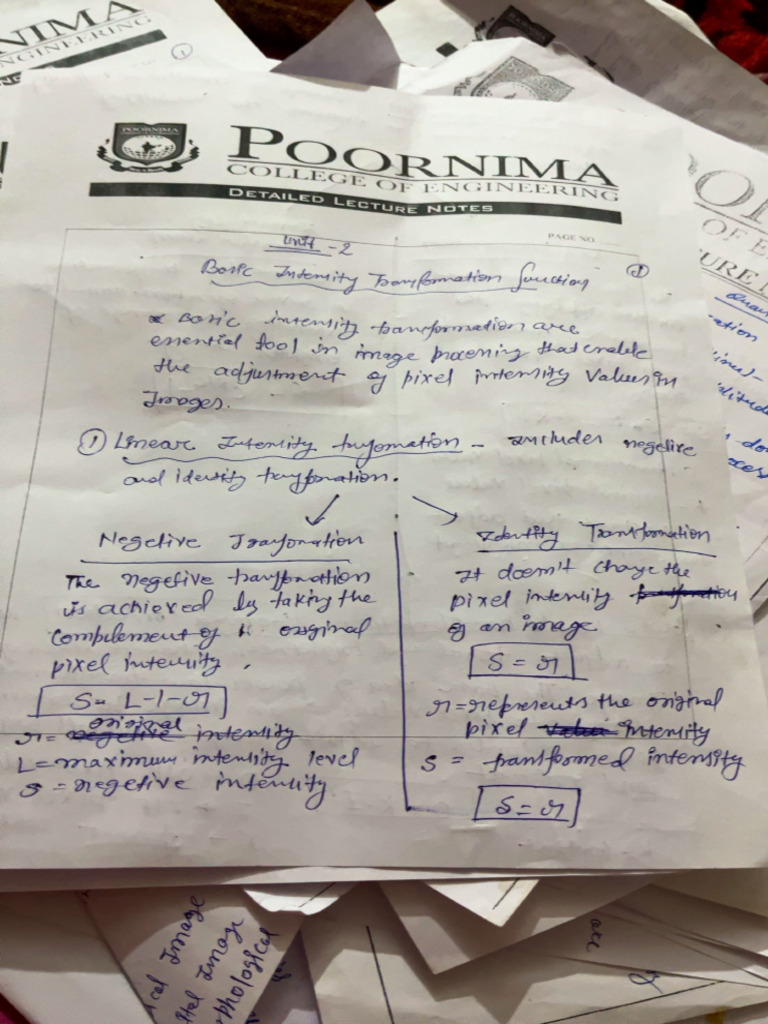 NIMA
ENGINEERING
1
POORNIMA
POORNIMA
COLLEGE OF ENGINEERING
DETAILED LECTURE NOTES
PAGE NO.
Unit - 2
Basic Intensity Transformation function
1
* Basic intensity transformation are
essential tool in image processing that enable
the adjustment of pixel intensity values in
Images.
① Linear Intensity tranfomation - includes negetive
and identity tranfomation.
Negetive Tranfomation
The negetive tranfomation
is achieved by taking the
complement of original
pixel intensity.
S = L-1-r
r = original intensity
L = maximum intensity level
S = negetive intensity
Identity Transformation
It doesn't change the
pixel intensity
of an image
S = r
r = represents the original
pixel intensity
S = transformed intensity
S = r
OF E
URE
ation
cal Image
Image
rphological
are